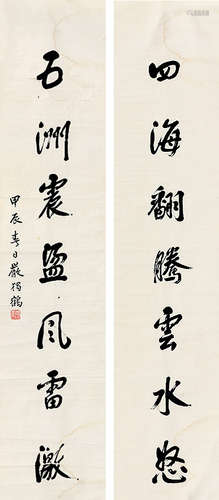 四海翻騰雲水怒
五洲震盪風雷激
甲辰春日嚴獨鶴